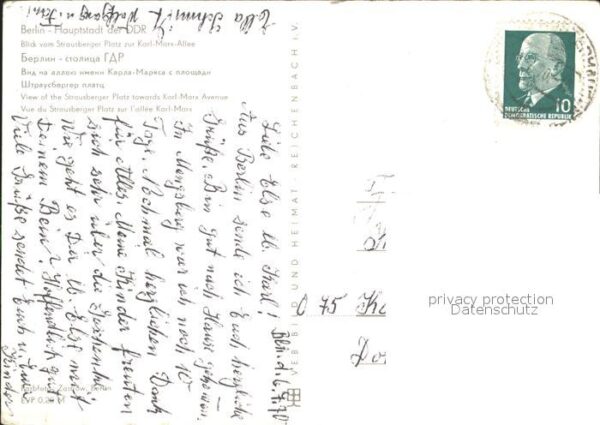 Berlin - Hauptstadt der DDR
Blick vom Strausberger Platz zur Karl-Marx-Allee
Берлин - столица ГДР
Вид на аллею имени Карла-Маркса с площади
Штраусбергер платц
View of the Strausberger Platz towards Karl-Marx Avenue
Vue du Strausberger Platz sur l'allée Karl-Marx
Berlin, d. 6.4.70
Liebe Else u. Karl!
Aus Berlin sende ich Euch herzliche
Grüße. Bin gut nach Hause gekommen.
In Merseburg war ich noch 10
Tage. Nochmal herzlichen Dank
für Alles. Meine Kinder freuten
sich sehr über die Geschenke.
Wie geht es Dir lb. Else mit
Deinem Bein? Hoffentlich gut.
Viele Grüße sendet Euch u. Eure
Kinder
Ella Schmidt
Wolfgang u.
VEB BILD UND HEIMAT REICHENBACH i. V.
Foto: Zastrow, Berlin
EVP 0,20 M
10
DEUTSCHE
DEMOKRATISCHE REPUBLIK
O 75
privacy protection
Datenschutz